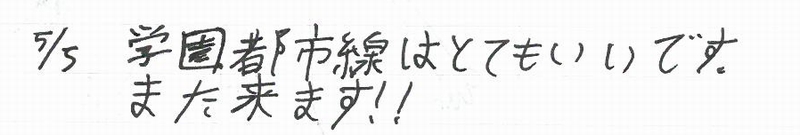 5/5 学園都市線はとてもいいです。
また来ます!!